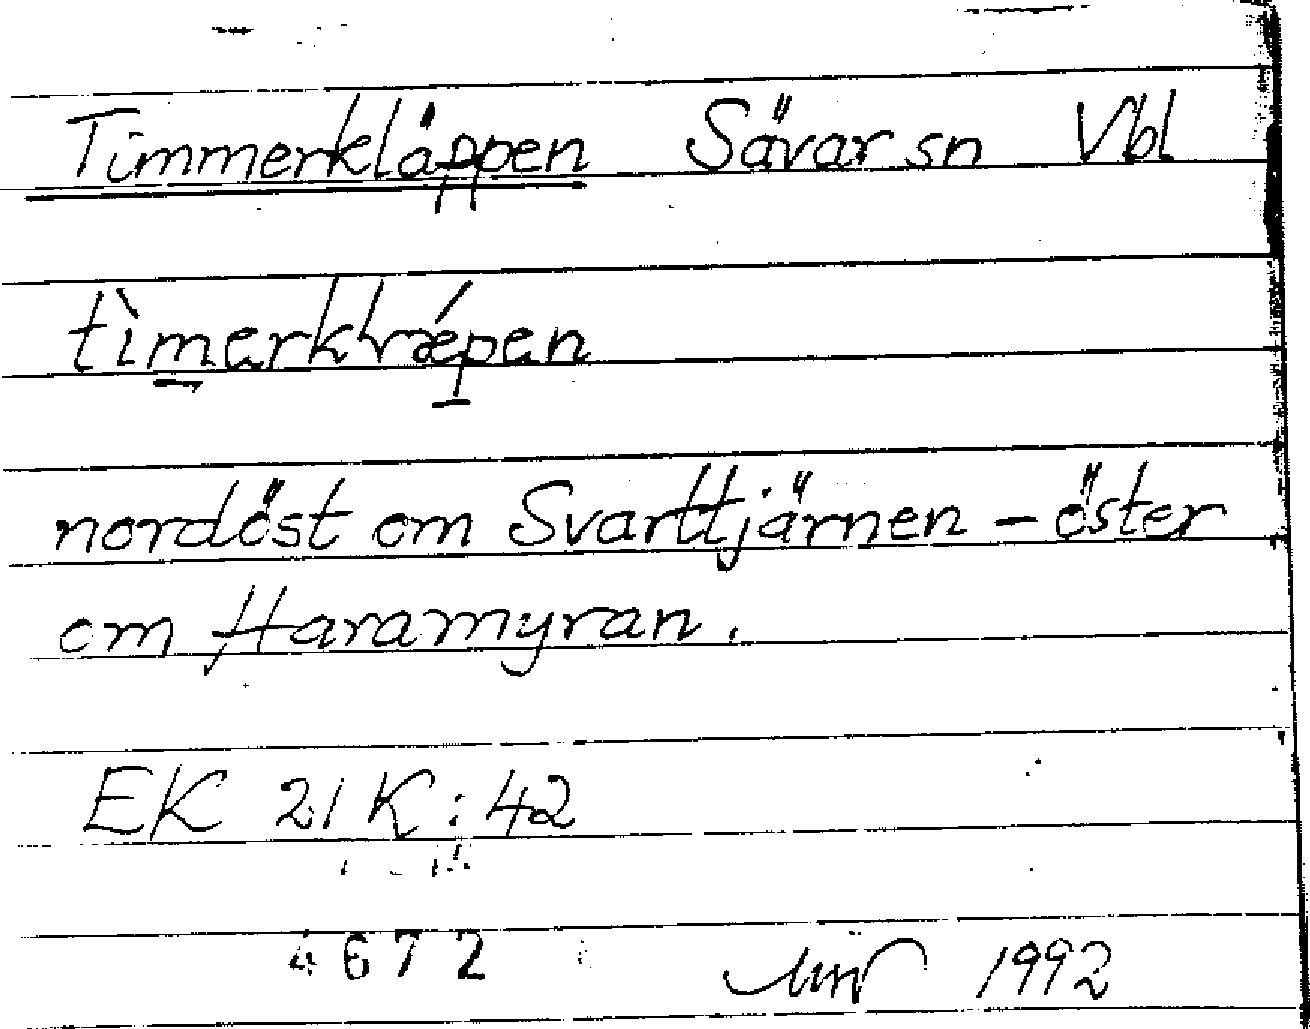 Timmerkläppen Sävar sn Vbl
nordöst om Svarttjärnen - öster
om Haramyran.
EK 21 K : 42
4672 1992